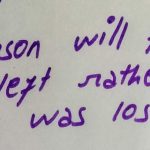 son will
left rathe
was los